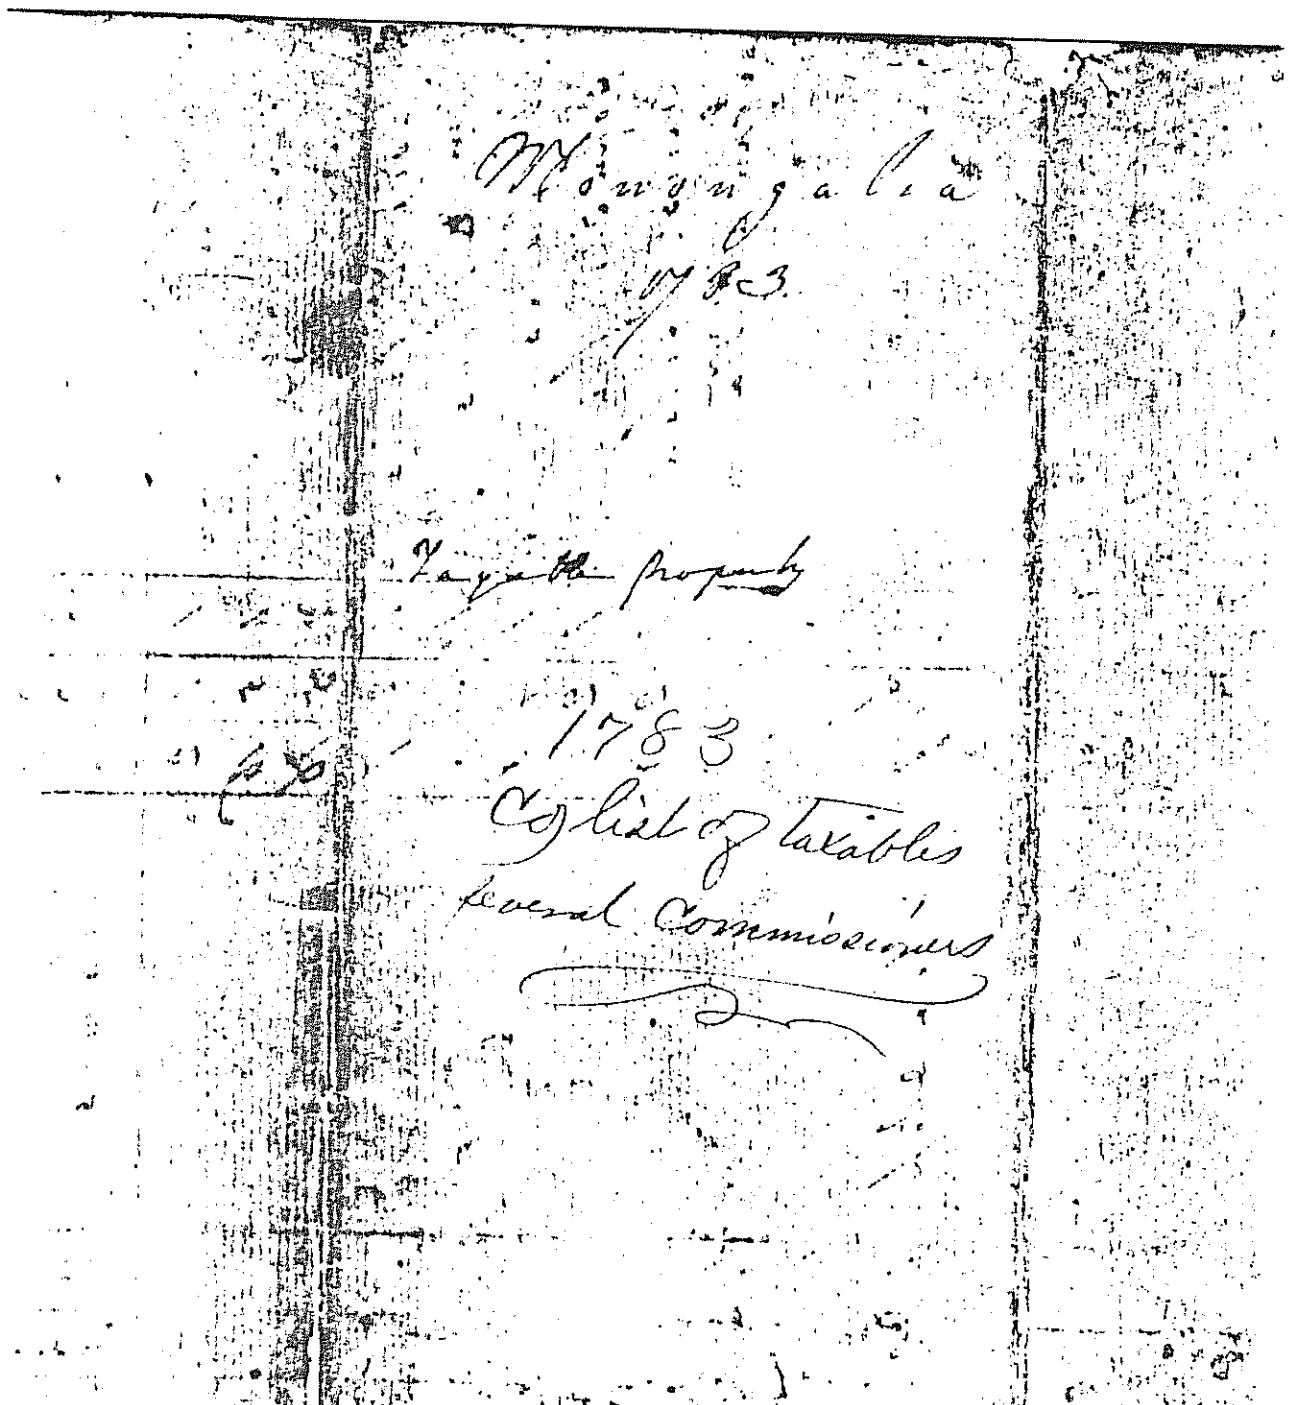 Monongalia
1783
Taxable Property
1783
Co list of taxables
several Commissioners